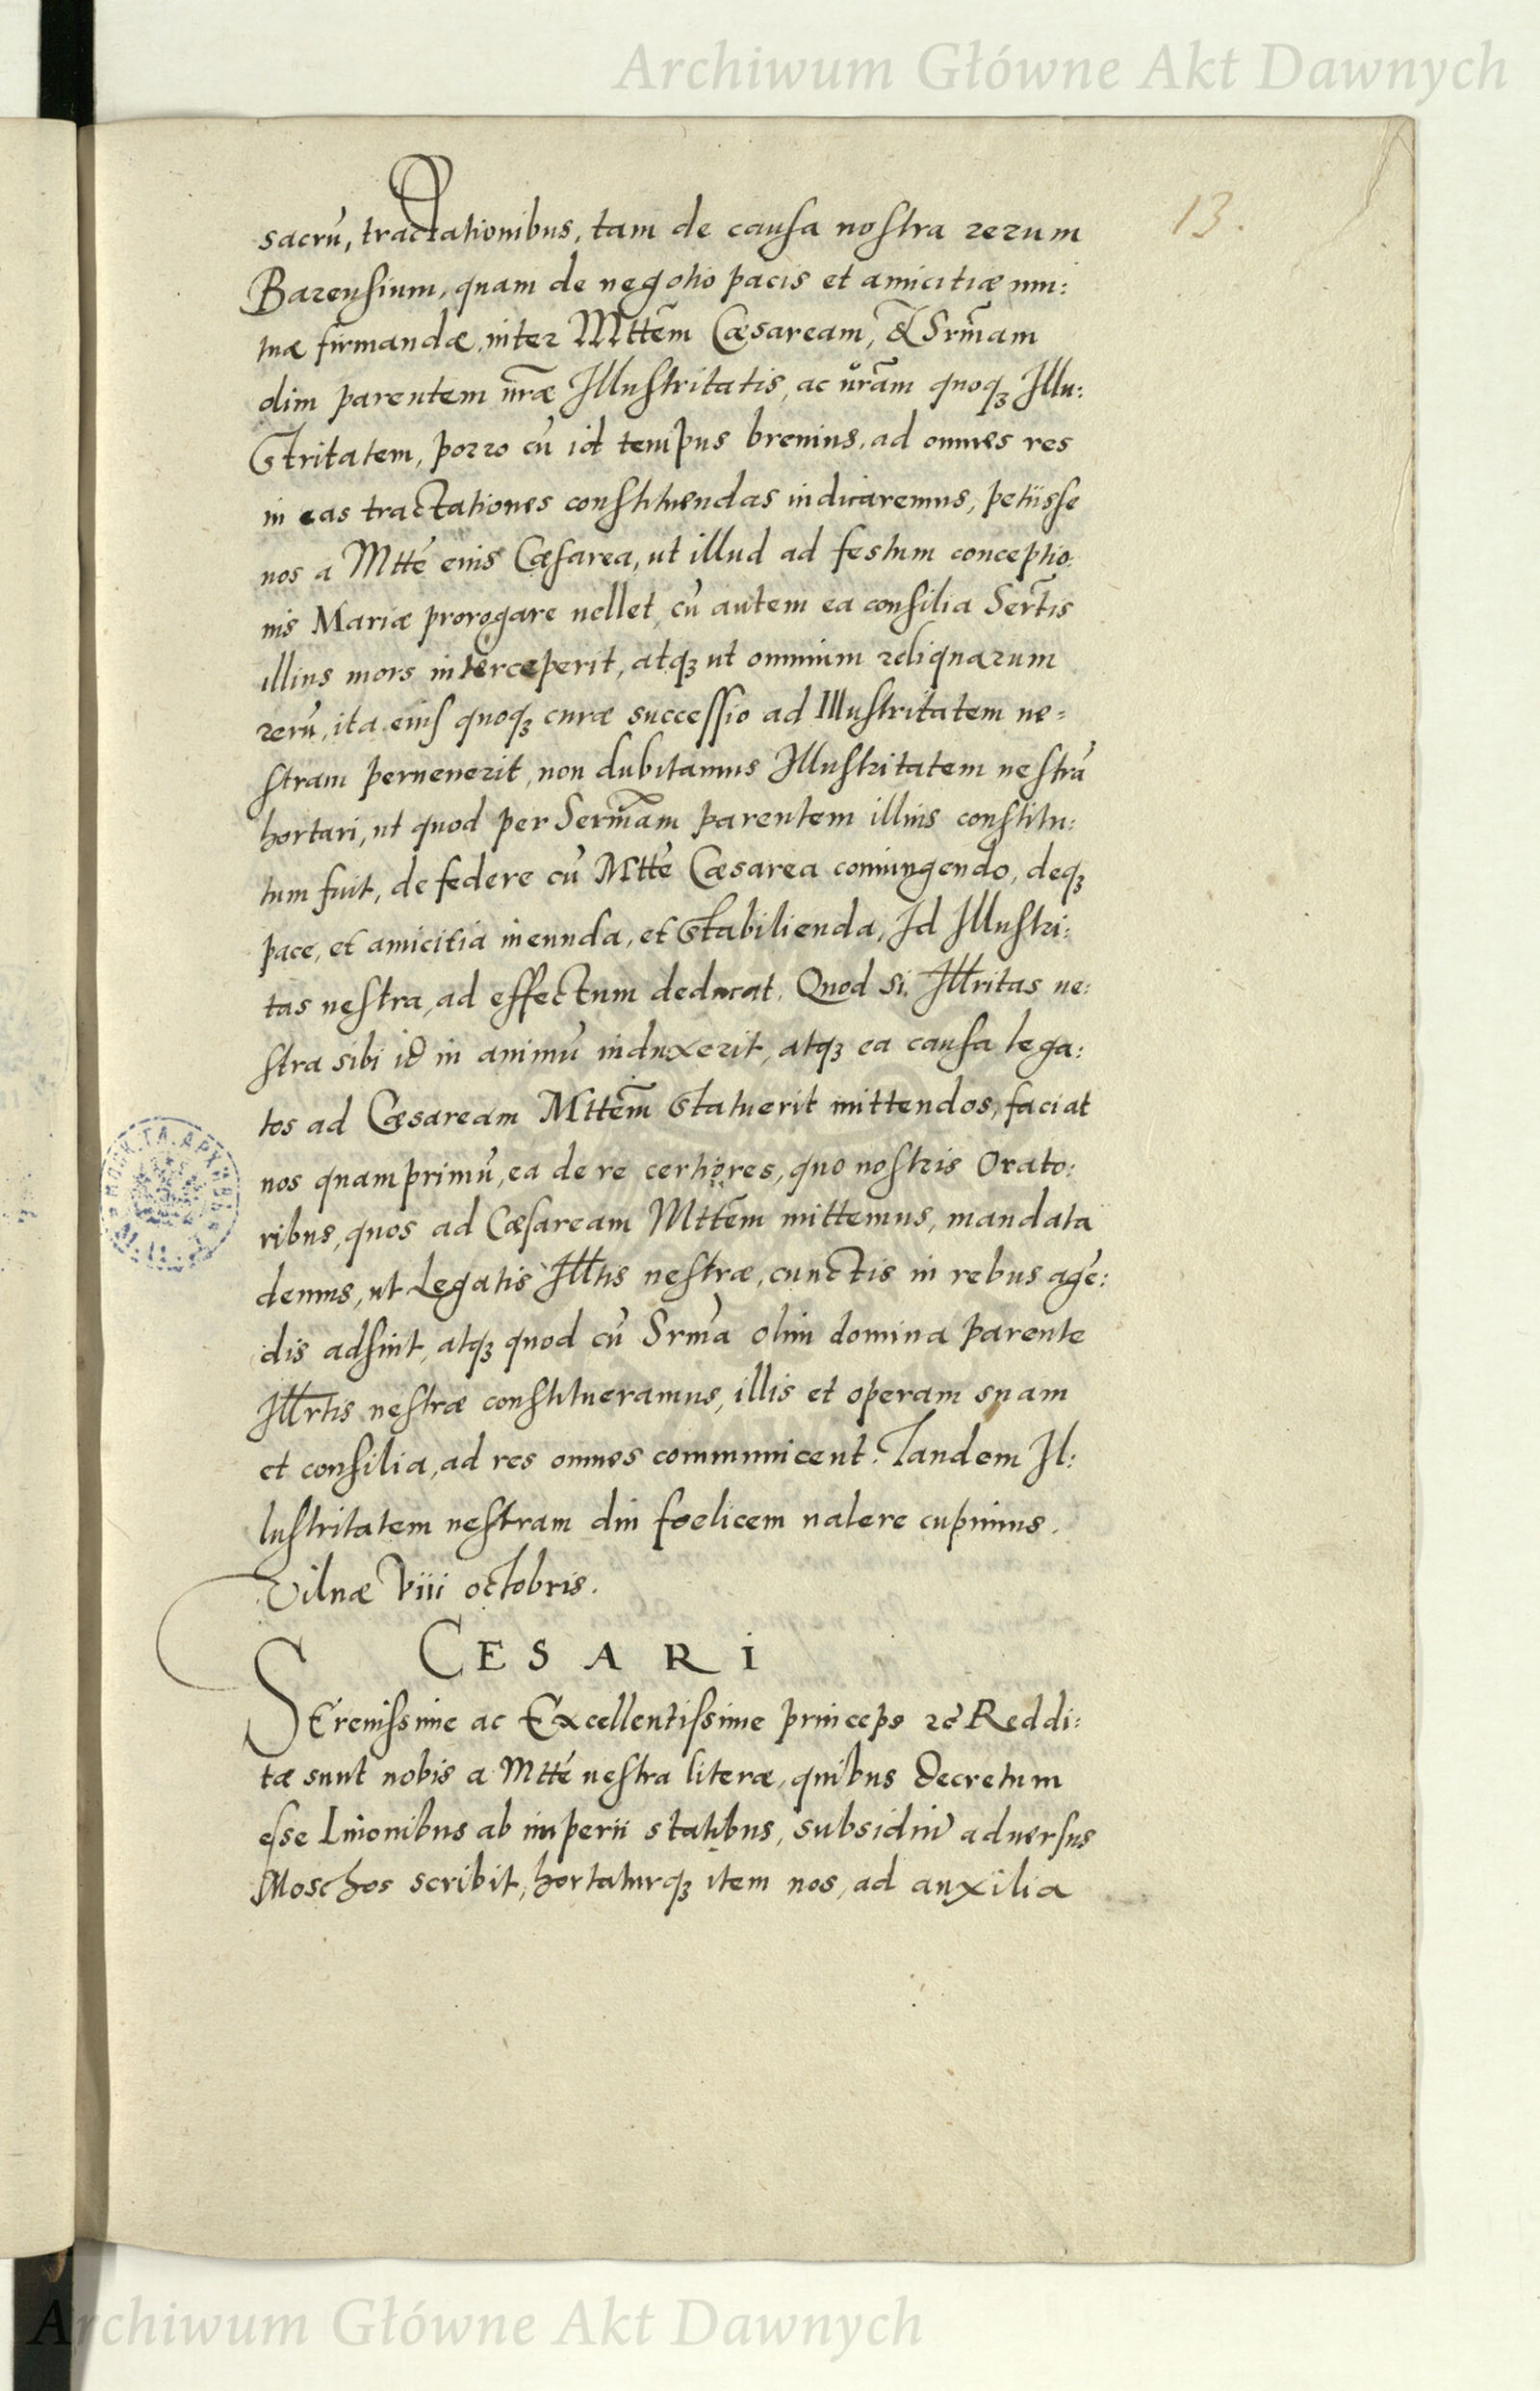 Archiwum Główne Akt Dawnych
13.
sacrũ, tractationibus, tam de causa nostra rerum
Barensium, quam de negotio pacis et amicitiæ mu:
tuæ firmandæ, inter Mttẽm Cæsaream, & Srm̃am
olim parentem ur̃æ Illustritatis, ac ur̃am quoqꝫ Illu:
stritatem, porro cũ id tempus brevius, ad omnes res
in eas tractationes constituendas indicaremus, petiisse
nos a Mttẽ eius Cæsarea, ut illud ad festum conceptio:
nis Mariæ prorogare uellet, cũ autem ea consilia Sert̃is
illius mors interceperit, atqꝫ ut omnium reliquarum
rerũ, ita eius quoqꝫ curæ successio ad Illustritatem ue=
stram peruenerit, non dubitamus Illustritatem uestrã
hortari, ut quod per Serm̃am parentem illius constitu:
tum fuit, de federe cũ Mttẽ Cæsarea coniungendo, deqꝫ
pace, et amicitia ineunda, et stabilienda, Id Illustri:
tas uestra, ad effectum deducat. Quod si Illritas ue:
stra sibi id in animũ induxerit, atqꝫ ea causa lega:
tos ad Cæsaream Mttẽm statuerit mittendos, faciat
nos quamprimũ, ea de re certiores, quo nostris Orato:
ribus, quos ad Cæsaream Mttẽm mittemus, mandata
demus, ut Legatis Illtis uestræ, cunctis in rebus agẽ:
dis adsint, atqꝫ quod cũ Srm̃a olim domina parente
Illrtis uestræ constitueramus, illis et operam suam
et consilia, ad res omnes communicent. Tandem Il:
lustritatem uestram diu foelicem ualere cupimus.
Vilnæ Viii octobris.
CESARI
Serenissime ac Excellentissime princeps ꝛc̃ Reddi:
tæ sunt nobis a Mttẽ uestra literæ, quibus decretum
esse Liuonibus ab imperii statibus, subsidiũ aduersus
Moschos scribit, hortaturqꝫ item nos, ad auxilia
Archiwum Główne Akt Dawnych